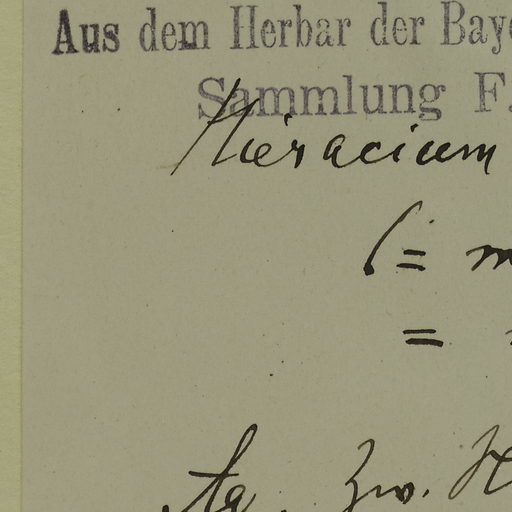 Aus dem Herbar der Baye
Sammlung F.
Hieracium
(= m
=
Ag. Zw. H